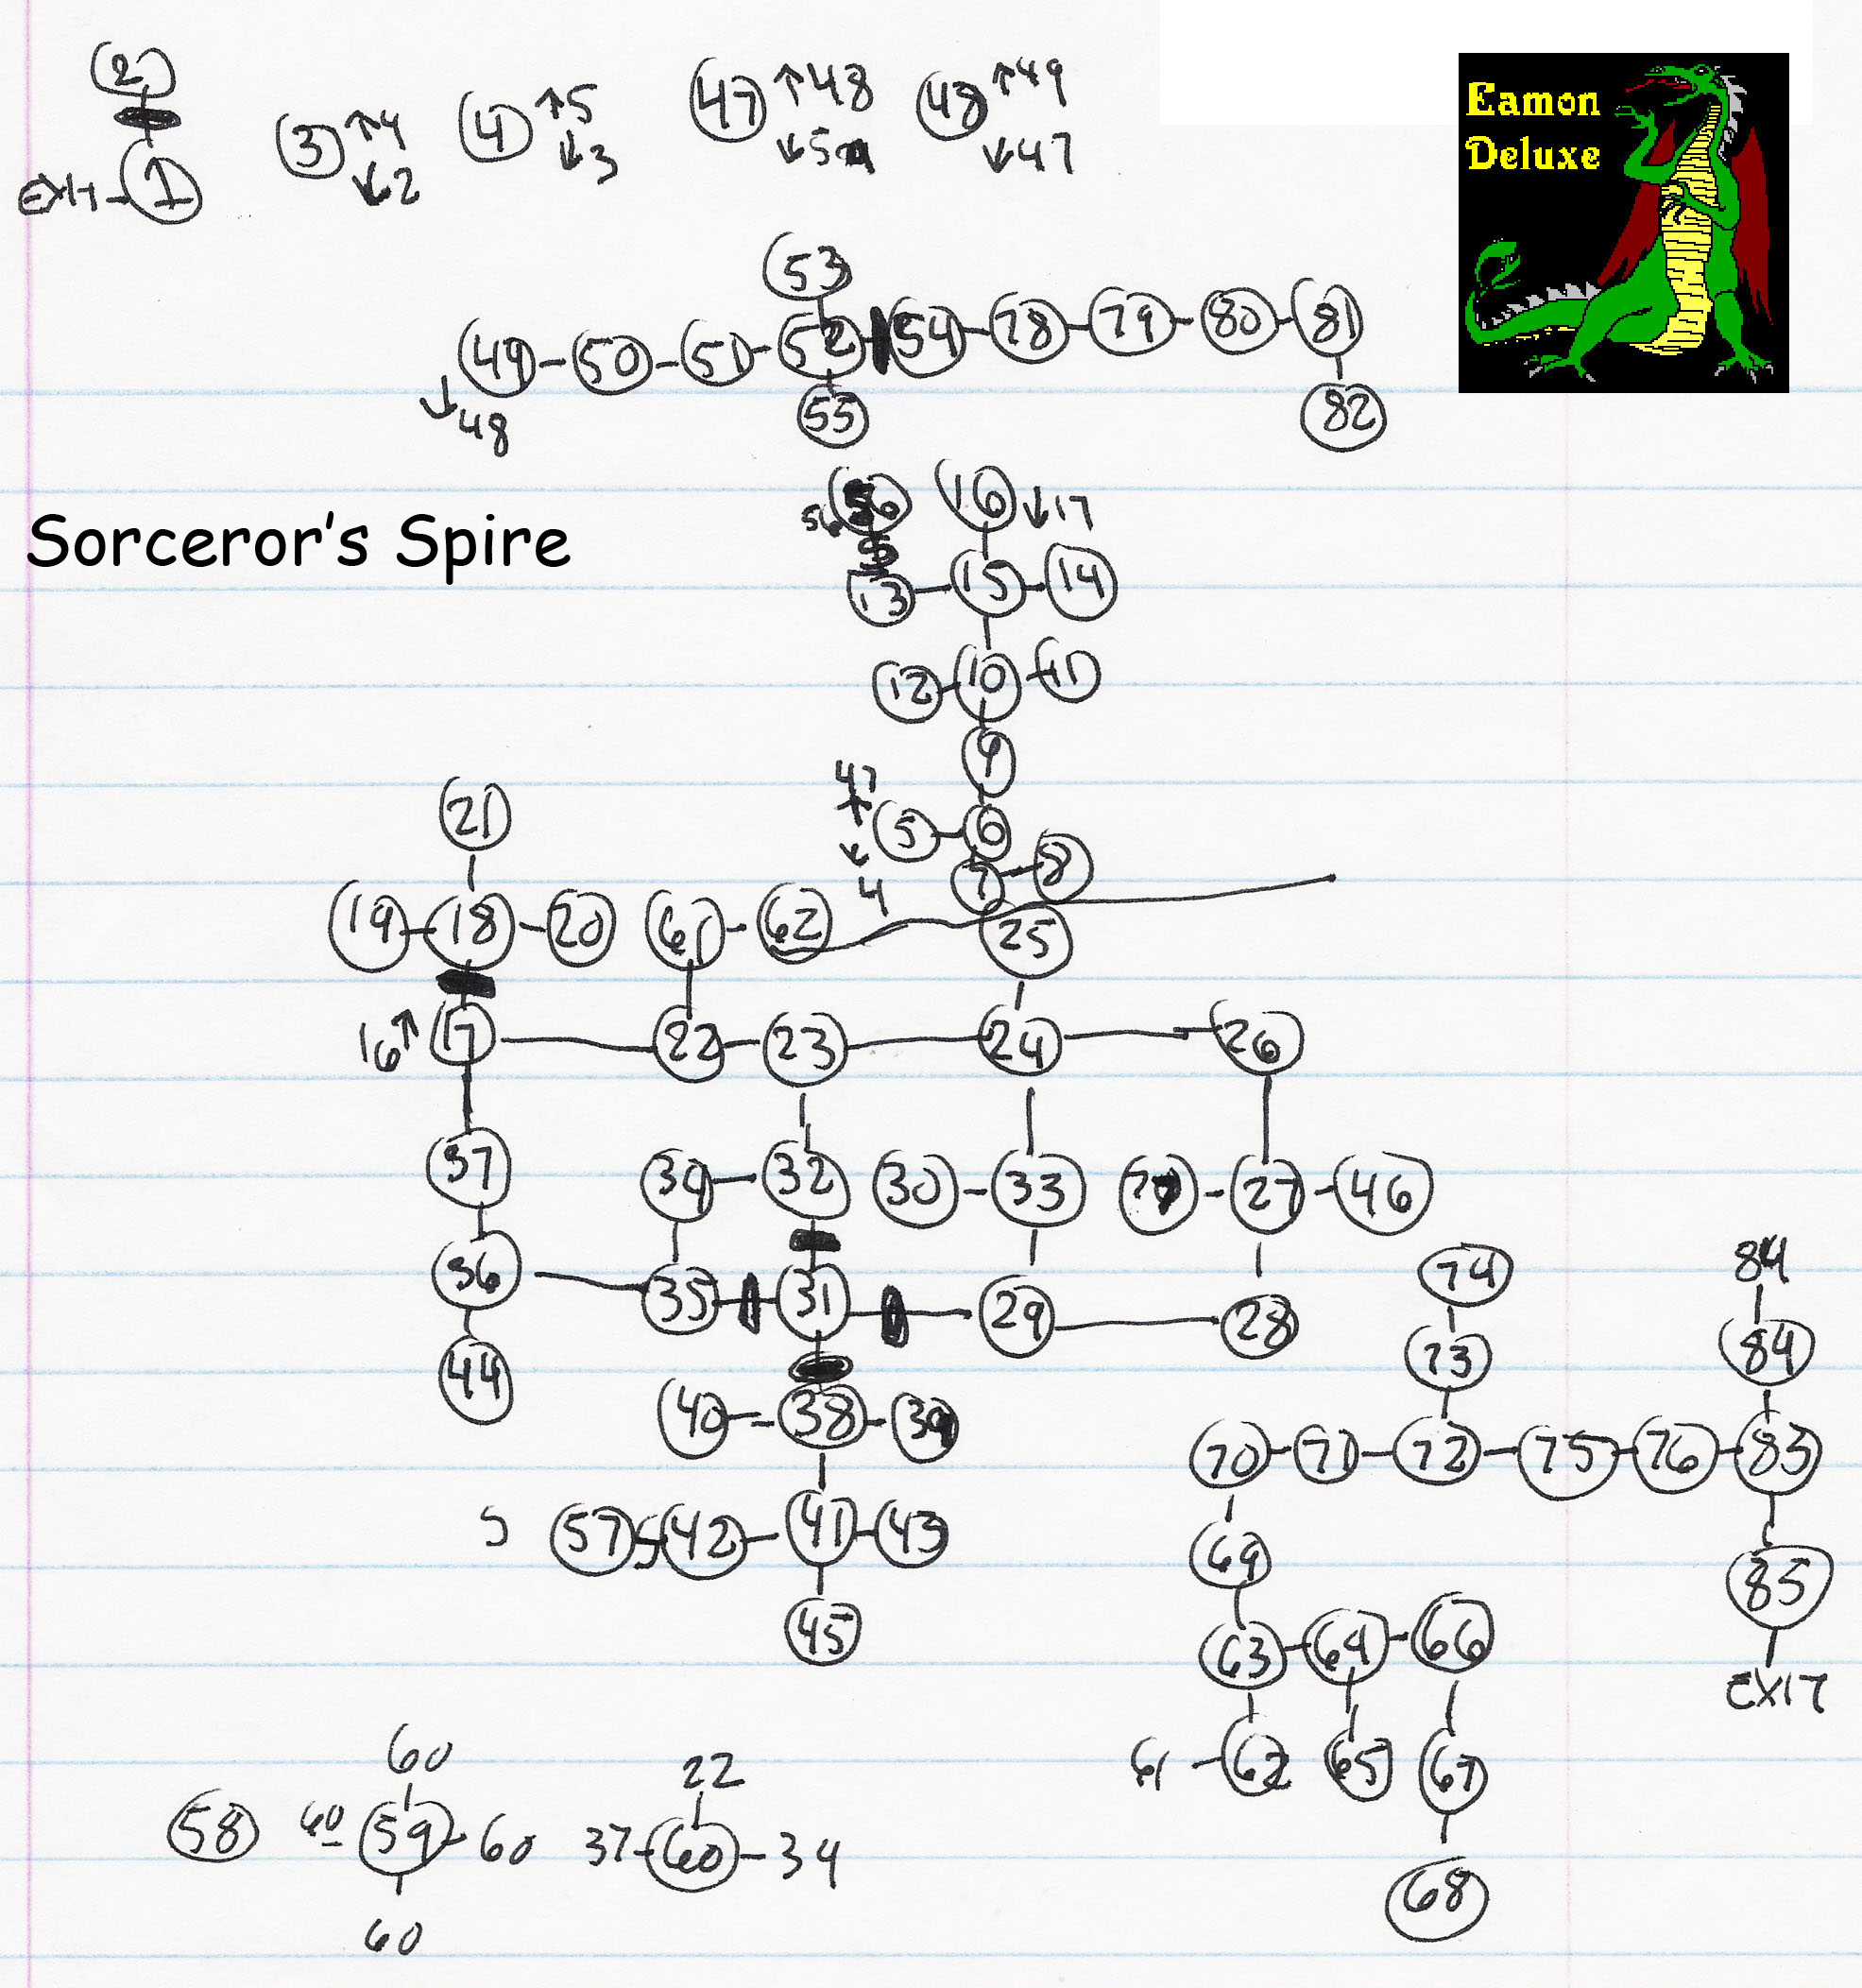 2
EXIT 1
3 ↑4 ↓2
4 ↑5 ↓3
47 ↑48 ↓5
48 ↑49 ↓47
Eamon
Deluxe
53
49 50 51 52 54 78 79 80 81
↓48
55 82
Sorceror's Spire
56 56 16 ↓17
13 15 14
12 10 11
9
47
↑
5 6
↓
4
7 8
21
19 18 20 61 62 25
16↑ 17 22 23 24 26
37 34 32 30 33 27 46
36 35 31 29 28
44
74 84
73 84
40 38 39
70 71 72 75 76 83
5 57 S 42 41 43
69 85
45
63 64 66
EXIT
61 62 65 67
68
60 22
58 60 59 60 37 60 34
60